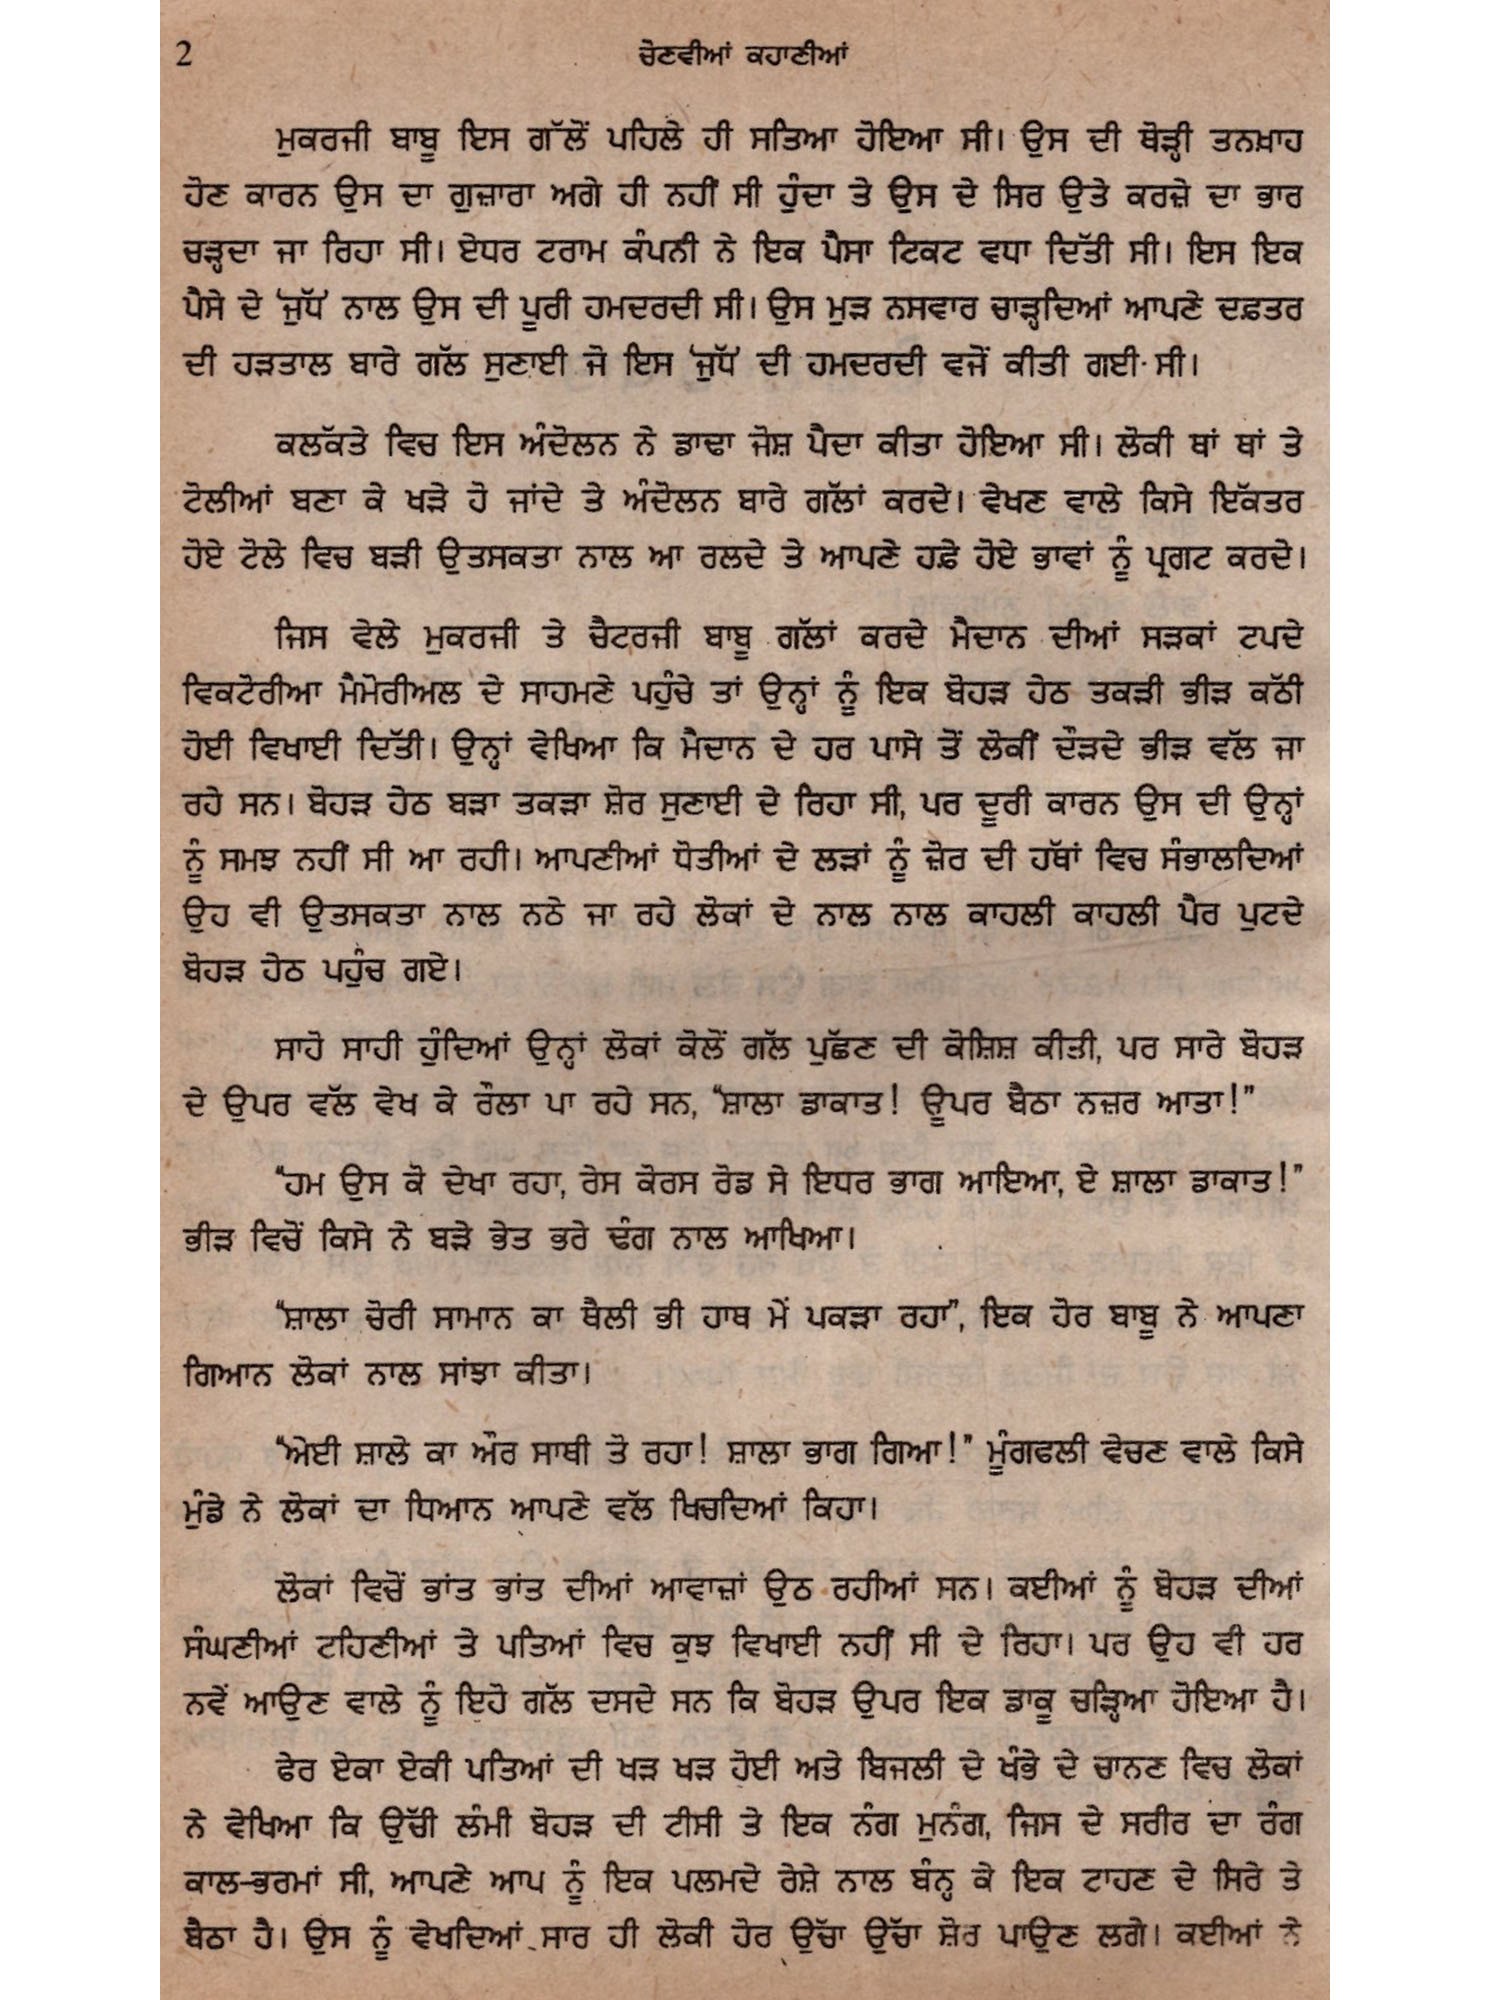 2
ਚੋਣਵੀਆਂ ਕਹਾਣੀਆਂ
ਮੁਕਰਜੀ ਬਾਬੂ ਇਸ ਗੱਲੋਂ ਪਹਿਲੇ ਹੀ ਸਤਿਆ ਹੋਇਆ ਸੀ। ਉਸ ਦੀ ਥੋੜ੍ਹੀ ਤਨਖ਼ਾਹ
ਹੋਣ ਕਾਰਨ ਉਸ ਦਾ ਗੁਜ਼ਾਰਾ ਅਗੇ ਹੀ ਨਹੀਂ ਸੀ ਹੁੰਦਾ ਤੇ ਉਸ ਦੇ ਸਿਰ ਉਤੇ ਕਰਜ਼ੇ ਦਾ ਭਾਰ
ਚੜ੍ਹਦਾ ਜਾ ਰਿਹਾ ਸੀ। ਏਧਰ ਟਰਾਮ ਕੰਪਨੀ ਨੇ ਇਕ ਪੈਸਾ ਟਿਕਟ ਵਧਾ ਦਿੱਤੀ ਸੀ। ਇਸ ਇਕ
ਪੈਸੇ ਦੇ 'ਜੁੱਧ' ਨਾਲ ਉਸ ਦੀ ਪੂਰੀ ਹਮਦਰਦੀ ਸੀ। ਉਸ ਮੁੜ ਨਸਵਾਰ ਚਾੜ੍ਹਦਿਆਂ ਆਪਣੇ ਦਫ਼ਤਰ
ਦੀ ਹੜਤਾਲ ਬਾਰੇ ਗੱਲ ਸੁਣਾਈ ਜੋ ਇਸ 'ਜੁੱਧ' ਦੀ ਹਮਦਰਦੀ ਵਜੋਂ ਕੀਤੀ ਗਈ ਸੀ।
ਕਲਕੱਤੇ ਵਿਚ ਇਸ ਅੰਦੋਲਨ ਨੇ ਡਾਢਾ ਜੋਸ਼ ਪੈਦਾ ਕੀਤਾ ਹੋਇਆ ਸੀ। ਲੋਕੀ ਥਾਂ ਥਾਂ ਤੇ
ਟੋਲੀਆਂ ਬਣਾ ਕੇ ਖੜੇ ਹੋ ਜਾਂਦੇ ਤੇ ਅੰਦੋਲਨ ਬਾਰੇ ਗੱਲਾਂ ਕਰਦੇ। ਵੇਖਣ ਵਾਲੇ ਕਿਸੇ ਇੱਕਤਰ
ਹੋਏ ਟੋਲੇ ਵਿਚ ਬੜੀ ਉਤਸਕਤਾ ਨਾਲ ਆ ਰਲਦੇ ਤੇ ਆਪਣੇ ਹਫ਼ੇ ਹੋਏ ਭਾਵਾਂ ਨੂੰ ਪ੍ਰਗਟ ਕਰਦੇ।
ਜਿਸ ਵੇਲੇ ਮੁਕਰਜੀ ਤੇ ਚੈਟਰਜੀ ਬਾਬੂ ਗੱਲਾਂ ਕਰਦੇ ਮੈਦਾਨ ਦੀਆਂ ਸੜਕਾਂ ਟਪਦੇ
ਵਿਕਟੋਰੀਆ ਮੈਮੋਰੀਅਲ ਦੇ ਸਾਹਮਣੇ ਪਹੁੰਚੇ ਤਾਂ ਉਨ੍ਹਾਂ ਨੂੰ ਇਕ ਬੋਹੜ ਹੇਠ ਤਕੜੀ ਭੀੜ ਕੱਠੀ
ਹੋਈ ਵਿਖਾਈ ਦਿੱਤੀ। ਉਨ੍ਹਾਂ ਵੇਖਿਆ ਕਿ ਮੈਦਾਨ ਦੇ ਹਰ ਪਾਸੇ ਤੋਂ ਲੋਕੀਂ ਦੌੜਦੇ ਭੀੜ ਵੱਲ ਜਾ
ਰਹੇ ਸਨ। ਬੋਹੜ ਹੇਠ ਬੜਾ ਤਕੜਾ ਸ਼ੋਰ ਸੁਣਾਈ ਦੇ ਰਿਹਾ ਸੀ, ਪਰ ਦੂਰੀ ਕਾਰਨ ਉਸ ਦੀ ਉਨ੍ਹਾਂ
ਨੂੰ ਸਮਝ ਨਹੀਂ ਸੀ ਆ ਰਹੀ। ਆਪਣੀਆਂ ਧੋਤੀਆਂ ਦੇ ਲੜਾਂ ਨੂੰ ਜ਼ੋਰ ਦੀ ਹੱਥਾਂ ਵਿਚ ਸੰਭਾਲਦਿਆਂ
ਉਹ ਵੀ ਉਤਸਕਤਾ ਨਾਲ ਨਠੇ ਜਾ ਰਹੇ ਲੋਕਾਂ ਦੇ ਨਾਲ ਨਾਲ ਕਾਹਲੀ ਕਾਹਲੀ ਪੈਰ ਪੁਟਦੇ
ਬੋਹੜ ਹੇਠ ਪਹੁੰਚ ਗਏ।
ਸਾਹੋ ਸਾਹੀ ਹੁੰਦਿਆਂ ਉਨ੍ਹਾਂ ਲੋਕਾਂ ਕੋਲੋਂ ਗੱਲ ਪੁੱਛਣ ਦੀ ਕੋਸ਼ਿਸ਼ ਕੀਤੀ, ਪਰ ਸਾਰੇ ਬੋਹੜ
ਦੇ ਉਪਰ ਵੱਲ ਵੇਖ ਕੇ ਰੌਲਾ ਪਾ ਰਹੇ ਸਨ, "ਸ਼ਾਲਾ ਡਾਕਾਤ! ਊਪਰ ਬੈਠਾ ਨਜ਼ਰ ਆਤਾ!"
"ਹਮ ਉਸ ਕੋ ਦੇਖਾ ਰਹਾ, ਰੇਸ ਕੋਰਸ ਰੋਡ ਸੇ ਇਧਰ ਭਾਗ ਆਇਆ, ਏ ਸ਼ਾਲਾ ਡਾਕਾਤ!"
ਭੀੜ ਵਿਚੋਂ ਕਿਸੇ ਨੇ ਬੜੇ ਭੇਤ ਭਰੇ ਢੰਗ ਨਾਲ ਆਖਿਆ।
"ਸ਼ਾਲਾ ਚੋਰੀ ਸਾਮਾਨ ਕਾ ਥੈਲੀ ਭੀ ਹਾਥ ਮੇਂ ਪਕੜਾ ਰਹਾ", ਇਕ ਹੋਰ ਬਾਬੂ ਨੇ ਆਪਣਾ
ਗਿਆਨ ਲੋਕਾਂ ਨਾਲ ਸਾਂਝਾ ਕੀਤਾ।
"ਐਈ ਸ਼ਾਲੇ ਕਾ ਔਰ ਸਾਥੀ ਤੋ ਰਹਾ! ਸ਼ਾਲਾ ਭਾਗ ਗਿਆ!" ਮੂੰਗਫਲੀ ਵੇਚਣ ਵਾਲੇ ਕਿਸੇ
ਮੁੰਡੇ ਨੇ ਲੋਕਾਂ ਦਾ ਧਿਆਨ ਆਪਣੇ ਵੱਲ ਖਿਚਦਿਆਂ ਕਿਹਾ।
ਲੋਕਾਂ ਵਿਚੋਂ ਭਾਂਤ ਭਾਂਤ ਦੀਆਂ ਆਵਾਜ਼ਾਂ ਉਠ ਰਹੀਆਂ ਸਨ। ਕਈਆਂ ਨੂੰ ਬੋਹੜ ਦੀਆਂ
ਸੰਘਣੀਆਂ ਟਹਿਣੀਆਂ ਤੇ ਪਤਿਆਂ ਵਿਚ ਕੁਝ ਵਿਖਾਈ ਨਹੀਂ ਸੀ ਦੇ ਰਿਹਾ। ਪਰ ਉਹ ਵੀ ਹਰ
ਨਵੇਂ ਆਉਣ ਵਾਲੇ ਨੂੰ ਇਹੋ ਗੱਲ ਦਸਦੇ ਸਨ ਕਿ ਬੋਹੜ ਉਪਰ ਇਕ ਡਾਕੂ ਚੜ੍ਹਿਆ ਹੋਇਆ ਹੈ।
ਫੇਰ ਏਕਾ ਏਕੀ ਪਤਿਆਂ ਦੀ ਖੜ ਖੜ ਹੋਈ ਅਤੇ ਬਿਜਲੀ ਦੇ ਖੰਭੇ ਦੇ ਚਾਨਣ ਵਿਚ ਲੋਕਾਂ
ਨੇ ਵੇਖਿਆ ਕਿ ਉੱਚੀ ਲੰਮੀ ਬੋਹੜ ਦੀ ਟੀਸੀ ਤੇ ਇਕ ਨੰਗ ਮੁਨੰਗ, ਜਿਸ ਦੇ ਸਰੀਰ ਦਾ ਰੰਗ
ਕਾਲ-ਭਰਮਾਂ ਸੀ, ਆਪਣੇ ਆਪ ਨੂੰ ਇਕ ਪਲਮਦੇ ਰੇਸ਼ੇ ਨਾਲ ਬੰਨ੍ਹ ਕੇ ਇਕ ਟਾਹਣ ਦੇ ਸਿਰੇ ਤੇ
ਬੈਠਾ ਹੈ। ਉਸ ਨੂੰ ਵੇਖਦਿਆਂ ਸਾਰ ਹੀ ਲੋਕੀ ਹੋਰ ਉੱਚਾ ਉੱਚਾ ਸ਼ੋਰ ਪਾਉਣ ਲਗੇ। ਕਈਆਂ ਨੇ